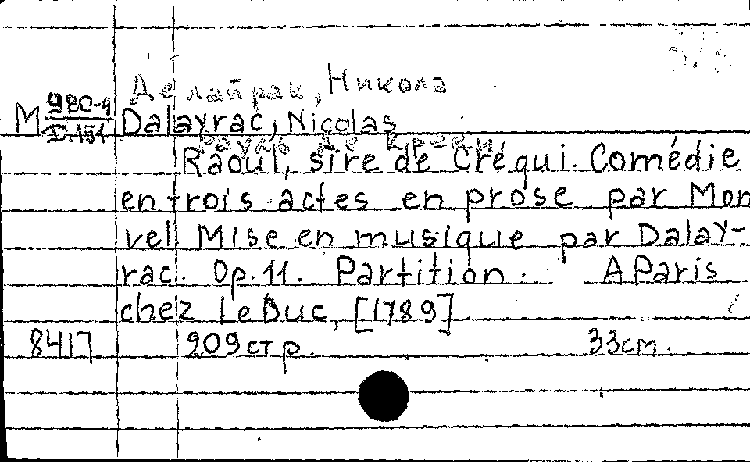 Делайрак, Никола
М 980-4 Dalayrac, Nicolas
I-151
Рауль де Креки
Raoul, sire de Créqui. Comédie
en trois actes en prose par Mon
vel Mise en musique par Dalay-
rac. Op. 11. Partition. A Paris
chez Le Duc, [1789]
8417 209 стр. 33 см.